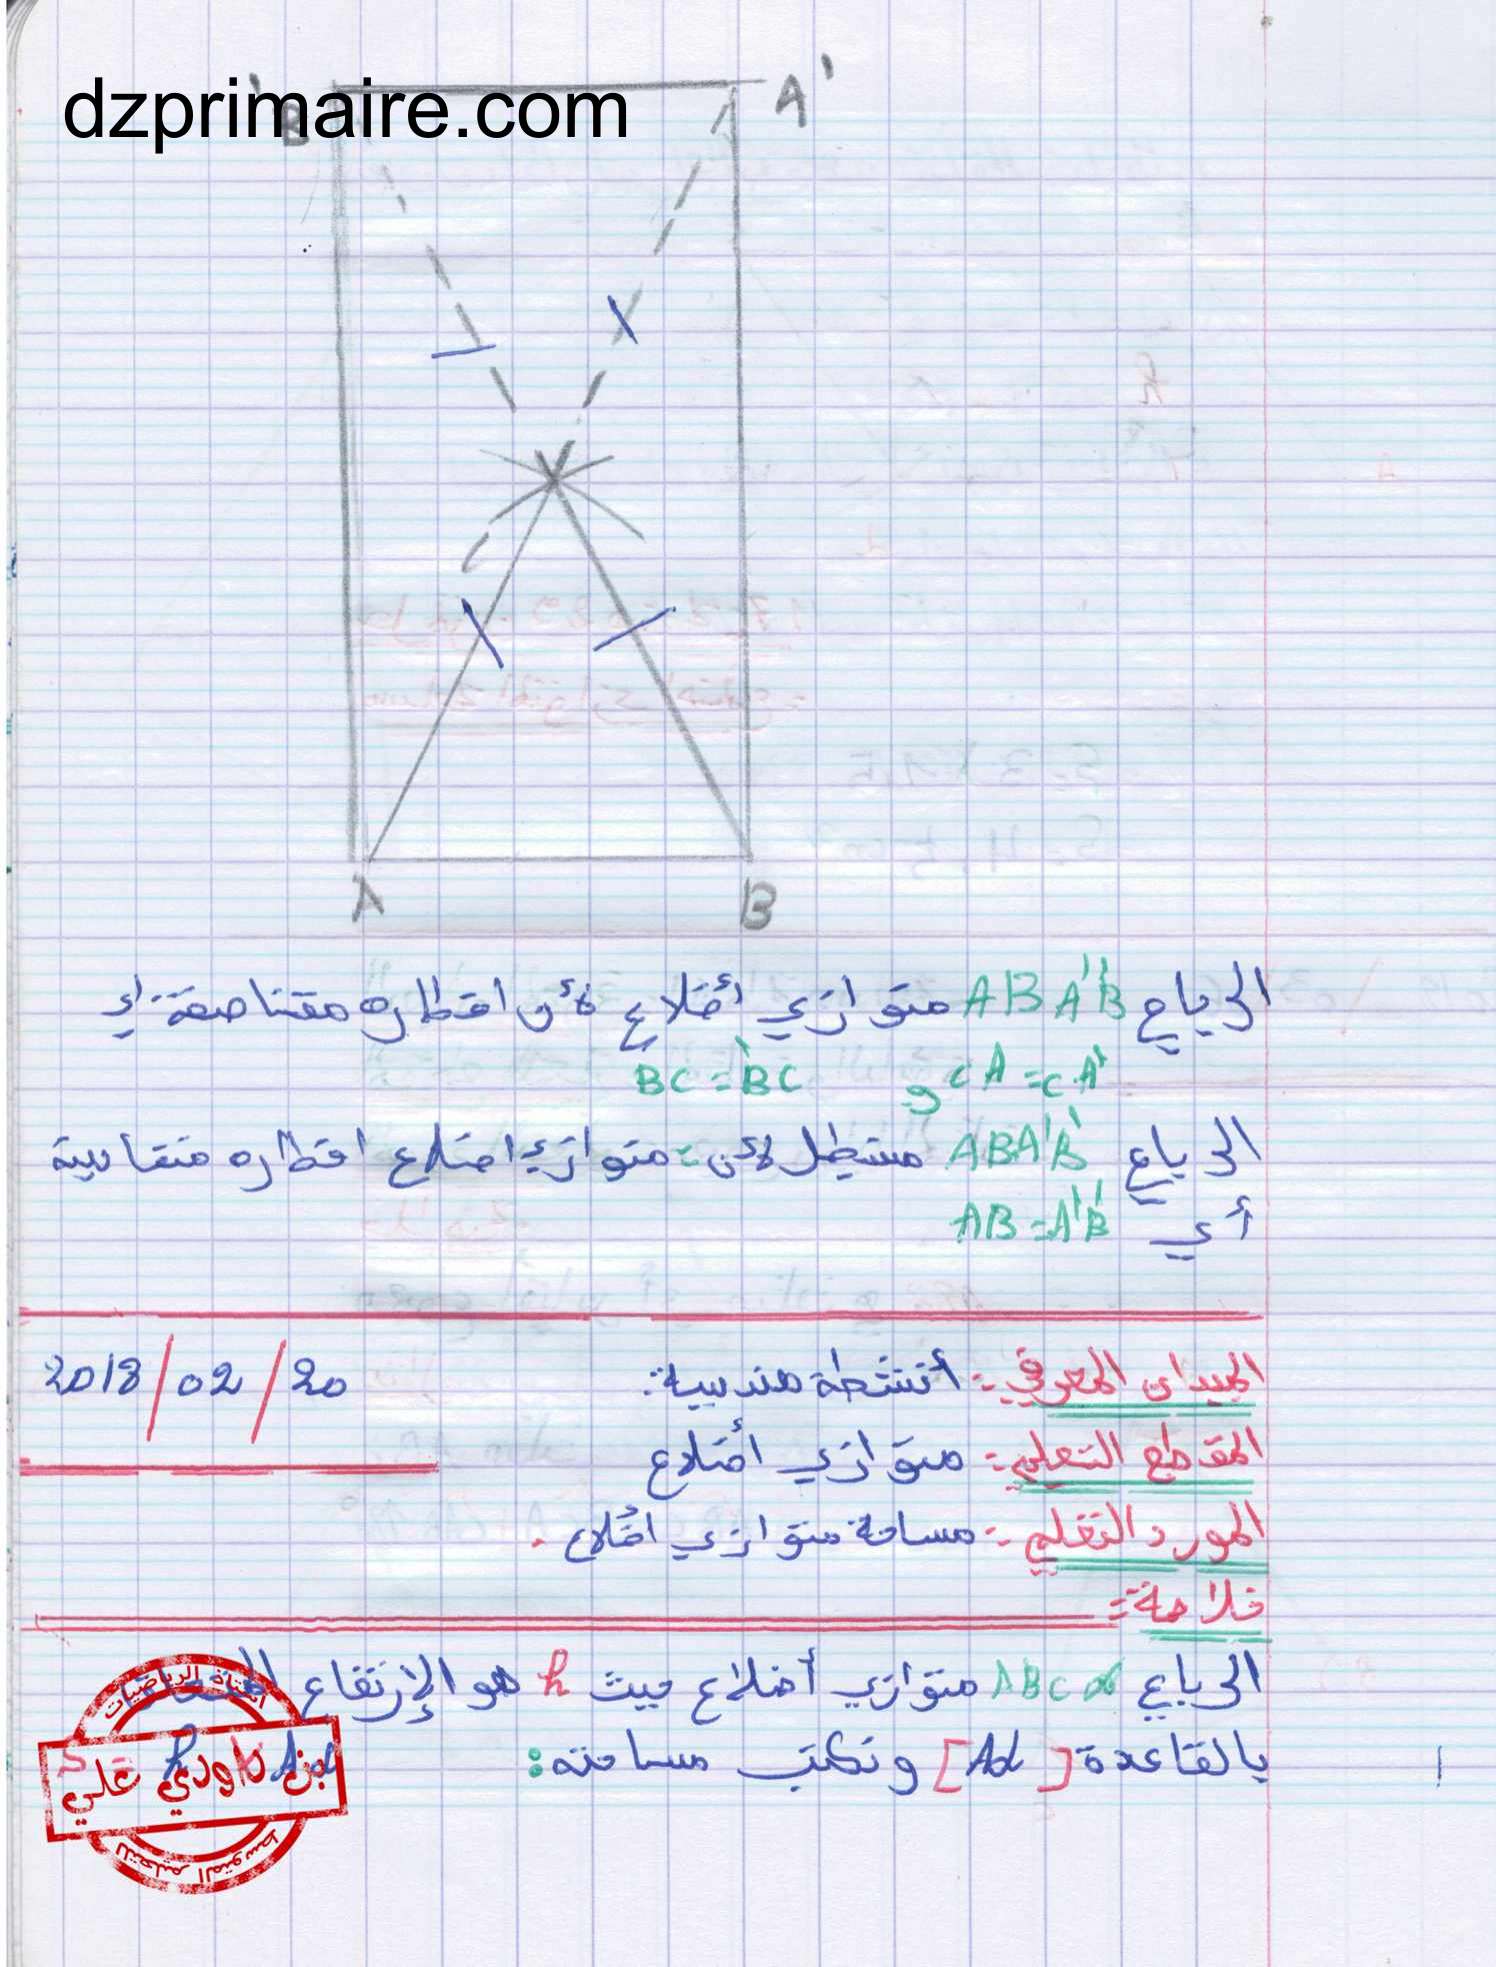 dzprimaire.com
B' A'
A B
الرباع ABA'B' متوازي أضلاع لأن اقطاره متناصفة أي
CA = CA' و BC = B'C
الرباع ABA'B' مستطيل لأن : متوازي اضلاع اقطاره متقايسة
أي AB = A'B'
الميدان المعرفي : أنشطة هندسية : 2018/02/20
المقطع التعلمي : متوازي أضلاع
المورد التعلمي : مساحة متوازي اضلاع .
خلاصة :
الرباعي ABCd متوازي أضلاع حيث h هو الإرتفاع المتعلق
بالقاعدة [Ad] ونكتب مساحته :
أستاذ الرياضيات
بن داودي علي
للتعليم المتوسط